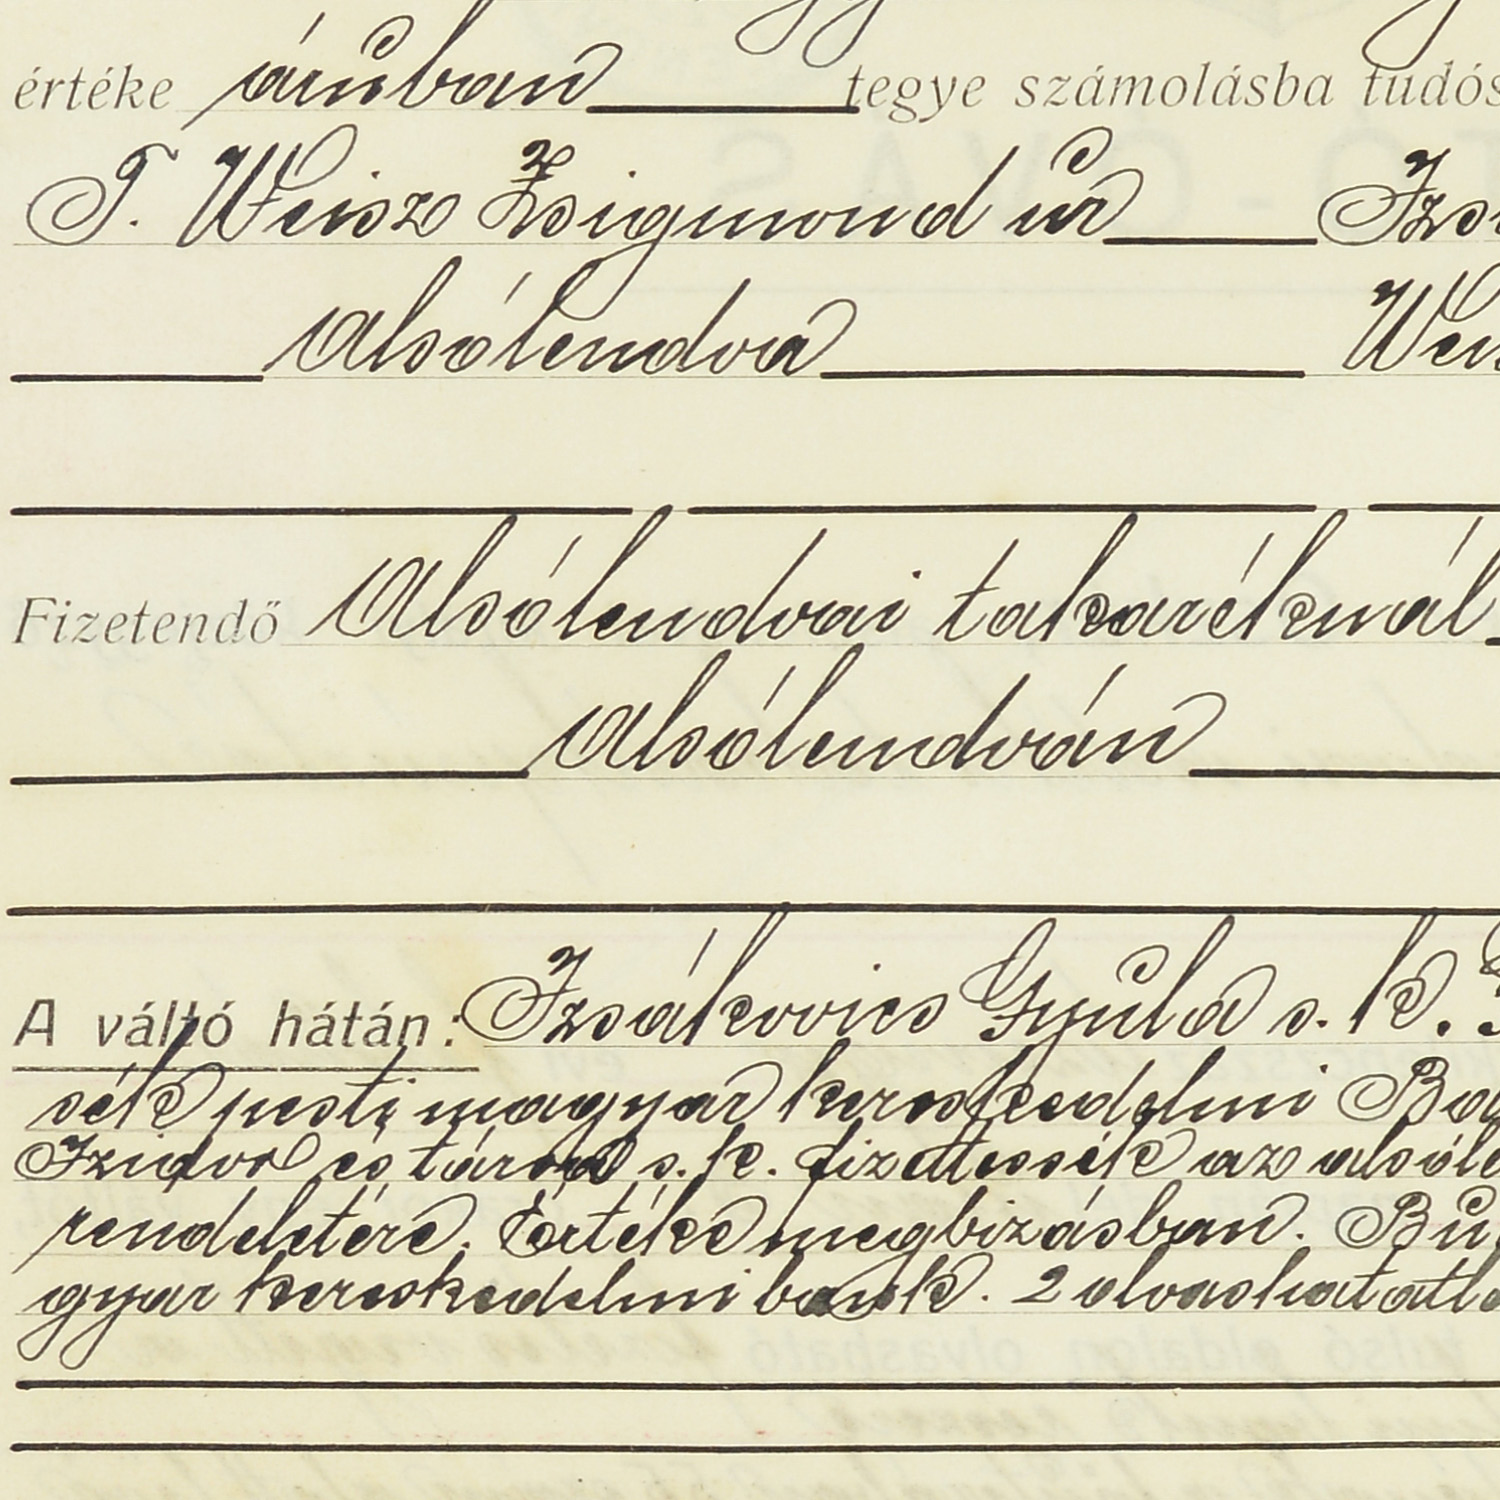 értéke áruban tegye számolásba tudós
T. Weisz Zsigmond úr Izs
Alsólendva Wei
Fizetendő Alsólendvai takaréknál
Alsólendván
A váltó hátán: Izsákovics Gyula s. k.
sék pesti magyar kereskedelmi Ba
Izidor és társa s. k. fizettessék az alsóle
rendeletére. Értéke megbizásban. Bu
gyar kereskedelmi bank. 2 olvashatatla